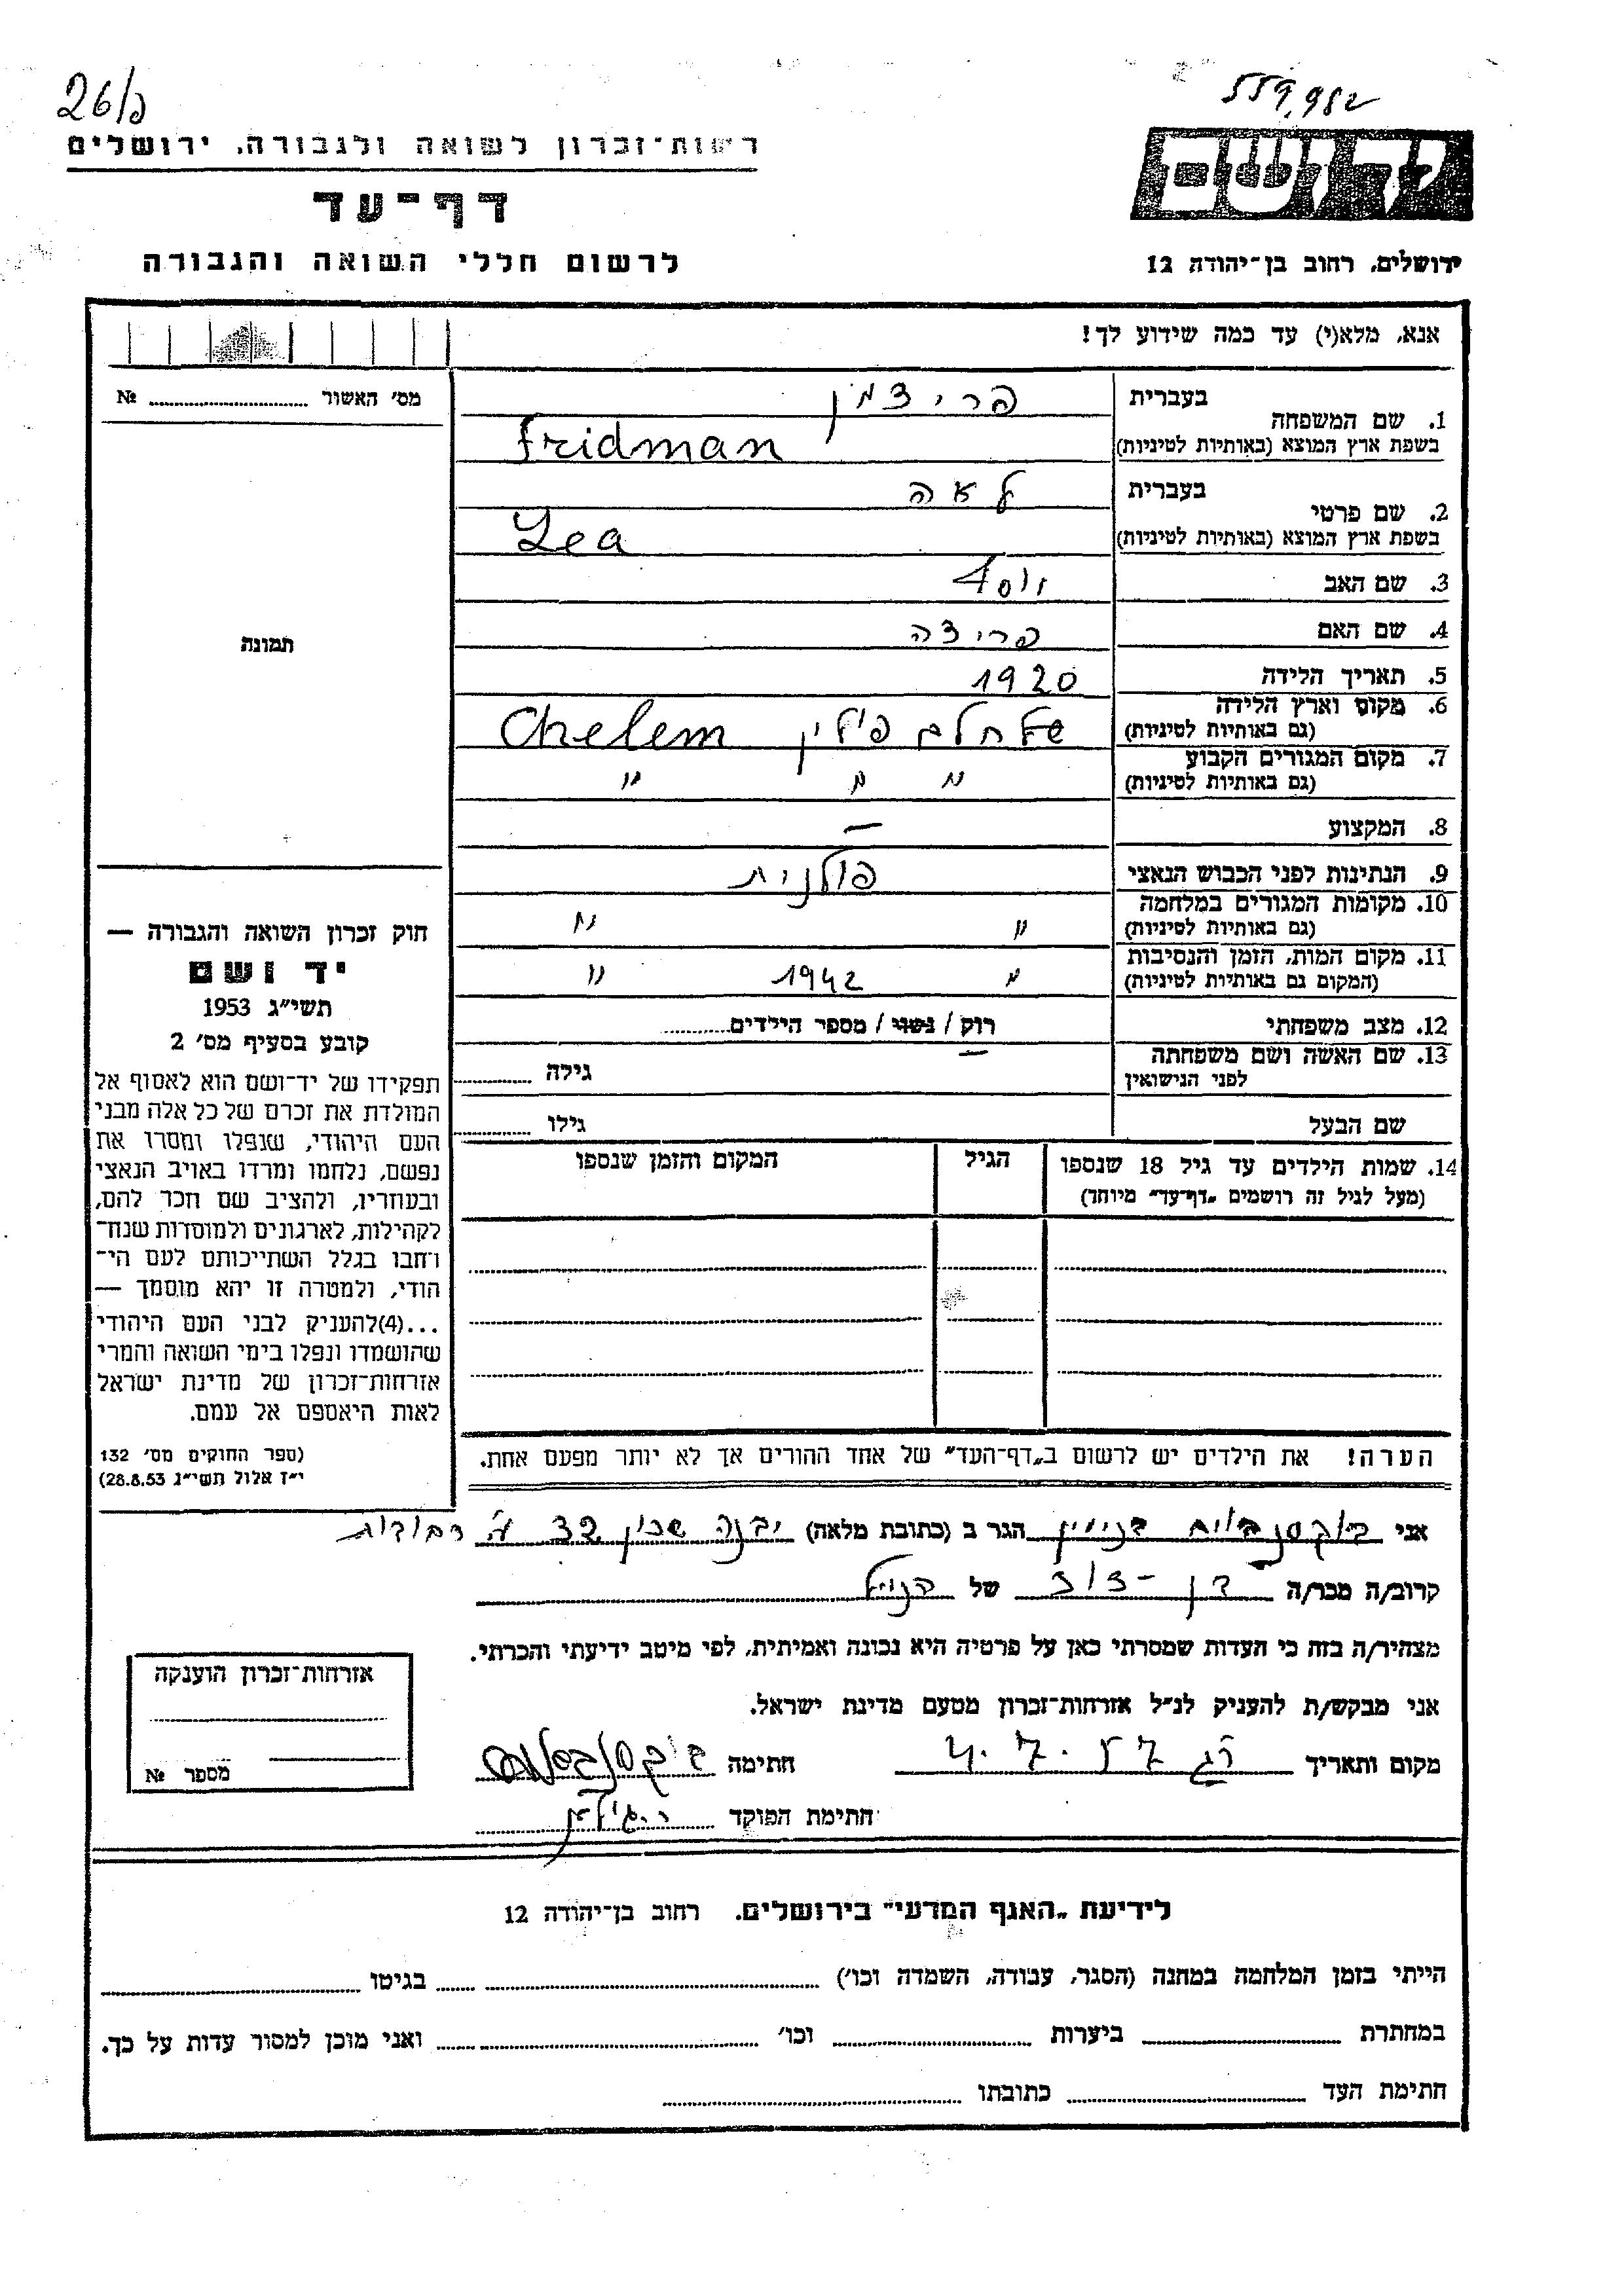 26/פ
559,982
רשות-זכרון לשואה ולגבורה. ירושלים
יד ושם
דף-עד
לרשום חללי השואה והגבורה
ירושלים, רחוב בן-יהודה 12
אנא, מלא(י) עד כמה שידוע לך!
מס' האשור № 
בעברית פרידמן
1. שם המשפחה
בשפת ארץ המוצא (באותיות לטיניות) Fridman
בעברית לאה
2. שם פרטי
בשפת ארץ המוצא (באותיות לטיניות) Lea
3. שם האב יוסף
4. שם האם פרידה
תמונה
5. תאריך הלידה 1920
6. מקום וארץ הלידה
(גם באותיות לטיניות) חלם פולין Chelem
7. מקום המגורים הקבוע
(גם באותיות לטיניות) " " "
8. המקצוע —
9. הנתינות לפני הכבוש הנאצי פולנית
10. מקומות המגורים במלחמה
(גם באותיות לטיניות) " "
11. מקום המות, הזמן והנסיבות
(המקום גם באותיות לטיניות) " 1942 "
12. מצב משפחתי רוק / נשוי / מספר הילדים
13. שם האשה ושם משפחתה — גילה
לפני הנישואין
שם הבעל גילו
14. שמות הילדים עד גיל 18 שנספו הגיל המקום והזמן שנספו
(מעל לגיל זה רושמים "דף-עד" מיוחד)
חוק זכרון השואה והגבורה —
יד ושם
תשי"ג 1953
קובע בסעיף מס' 2
תפקידו של יד-ושם הוא לאסוף אל
המולדת את זכרם של כל אלה מבני
העם היהודי, שנפלו ומסרו את
נפשם, נלחמו ומרדו באויב הנאצי
ובעוזריו, ולהציב שם וזכר להם,
לקהילות, לארגונים ולמוסדות שנח-
רחבו בגלל השתייכותם לעם הי-
הודי, ולמטרה זו יהא מוסמך —
...(4)להעניק לבני העם היהודי
שהושמדו ונפלו בימי השואה והמרי
אזרחות-זכרון של מדינת ישראל
לאות היאספם אל עמם.
(ספר החוקים מס' 132
י"ז אלול תשי"ג 28.8.53)
הערה! את הילדים יש לרשום ב"דף-העד" של אחד ההורים אך לא יותר מפעם אחת.
אני בוקסנבוים בנימין הגר ב (כתובת מלאה) יבנה שכון
קרוב/ה מכר/ה בן-דוד של הנ"ל
מצהיר/ה בזה כי העדות שמסרתי כאן על פרטיה היא נכונה ואמיתית, לפי מיטב ידיעתי והכרתי.
אני מבקש/ת להעניק לנ"ל אזרחות-זכרון מטעם מדינת ישראל.
מקום ותאריך 4.7.57 חתימה
חתימת הפוקד
אזרחות-זכרון הוענקה
מספר №
לידיעת "האגף המדעי" בירושלים. רחוב בן-יהודה 12
הייתי בזמן המלחמה במחנה (הסגר, עבודה, השמדה וכו') בגיטו
במחתרת ביערות וכו' ואני מוכן למסור עדות על כך.
חתימת העד כתובתו